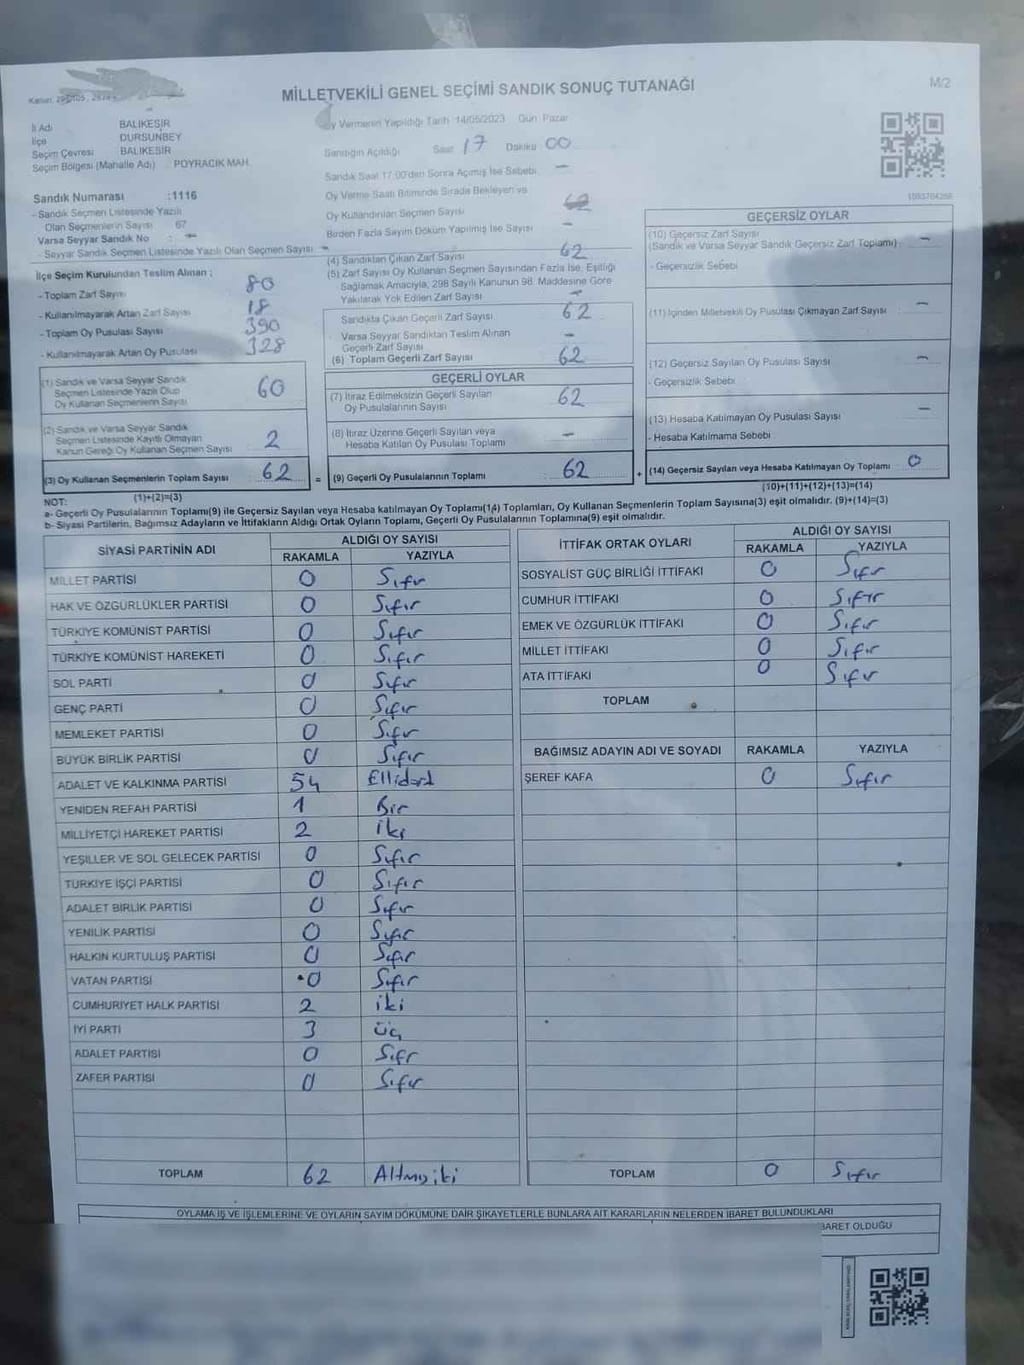 MİLLETVEKİLİ GENEL SEÇİMİ SANDIK SONUÇ TUTANAĞI
M/2
İl Adı BALIKESİR
İlçe DURSUNBEY
Seçim Çevresi BALIKESİR
Seçim Bölgesi (Mahalle Adı) : POYRACIK MAH.
Sandık Numarası :1116
- Sandık Seçmen Listesinde Yazılı
Olan Seçmenlerin Sayısı : 67
Varsa Seyyar Sandık No : -
- Seyyar Sandık Seçmen Listesinde Yazılı Olan Seçmen Sayısı : -
İlçe Seçim Kurulundan Teslim Alınan ;
- Toplam Zarf Sayısı 80
- Kullanılmayarak Artan Zarf Sayısı 18
- Toplam Oy Pusulası Sayısı 390
- Kullanılmayarak Artan Oy Pusulası 328
(1) Sandık ve Varsa Seyyar Sandık
Seçmen Listesinde Yazılı Olup
Oy Kullanan Seçmenlerin Sayısı 60
(2) Sandık ve Varsa Seyyar Sandık
Seçmen Listesinde Kayıtlı Olmayan
Kanun Gereği Oy Kullanan Seçmen Sayısı 2
(3) Oy Kullanan Seçmenlerin Toplam Sayısı 62
(1)+(2)=(3)
Oy Vermenin Yapıldığı Tarih 14/05/2023 Gün: Pazar
Sandığın Açıldığı Saat 17 Dakika 00
Sandık Saat 17.00'den Sonra Açılmış İse Sebebi -
Oy Verme Saati Bitiminde Sırada Bekleyen ve
Oy Kullandırılan Seçmen Sayısı
Birden Fazla Sayım Döküm Yapılmış İse Sayısı -
(4) Sandıktan Çıkan Zarf Sayısı 62
(5) Zarf Sayısı Oy Kullanan Seçmen Sayısından Fazla İse, Eşitliği
Sağlamak Amacıyla, 298 Sayılı Kanunun 98. Maddesine Göre
Yakılarak Yok Edilen Zarf Sayısı -
Sandıkta Çıkan Geçerli Zarf Sayısı 62
Varsa Seyyar Sandıktan Teslim Alınan
Geçerli Zarf Sayısı -
(6) Toplam Geçerli Zarf Sayısı 62
GEÇERLİ OYLAR
(7) İtiraz Edilmeksizin Geçerli Sayılan
Oy Pusulalarının Sayısı 62
(8) İtiraz Üzerine Geçerli Sayılan veya
Hesaba Katılan Oy Pusulası Toplamı -
= (9) Geçerli Oy Pusulalarının Toplamı 62
GEÇERSİZ OYLAR
(10) Geçersiz Zarf Sayısı
(Sandık ve Varsa Seyyar Sandık Geçersiz Zarf Toplamı) -
- Geçersizlik Sebebi
(11) İçinden Milletvekili Oy Pusulası Çıkmayan Zarf Sayısı -
(12) Geçersiz Sayılan Oy Pusulası Sayısı -
- Geçersizlik Sebebi
(13) Hesaba Katılmayan Oy Pusulası Sayısı -
- Hesaba Katılmama Sebebi
+ (14) Geçersiz Sayılan veya Hesaba Katılmayan Oy Toplamı 0
(10)+(11)+(12)+(13)=(14)
NOT:
a- Geçerli Oy Pusulalarının Toplamı(9) ile Geçersiz Sayılan veya Hesaba katılmayan Oy Toplamı(14) Toplamları, Oy Kullanan Seçmenlerin Toplam Sayısına(3) eşit olmalıdır. (9)+(14)=(3)
b- Siyasi Partilerin, Bağımsız Adayların ve İttifakların Aldığı Ortak Oyların Toplamı, Geçerli Oy Pusulalarının Toplamına(9) eşit olmalıdır.
SİYASİ PARTİNİN ADI ALDIĞI OY SAYISI
RAKAMLA YAZIYLA
MİLLET PARTİSİ 0 Sıfır
HAK VE ÖZGÜRLÜKLER PARTİSİ 0 Sıfır
TÜRKİYE KOMÜNİST PARTİSİ 0 Sıfır
TÜRKİYE KOMÜNİST HAREKETİ 0 Sıfır
SOL PARTİ 0 Sıfır
GENÇ PARTİ 0 Sıfır
MEMLEKET PARTİSİ 0 Sıfır
BÜYÜK BİRLİK PARTİSİ 0 Sıfır
ADALET VE KALKINMA PARTİSİ 54 Ellidört
YENİDEN REFAH PARTİSİ 1 Bir
MİLLİYETÇİ HAREKET PARTİSİ 2 iki
YEŞİLLER VE SOL GELECEK PARTİSİ 0 Sıfır
TÜRKİYE İŞÇİ PARTİSİ 0 Sıfır
ADALET BİRLİK PARTİSİ 0 Sıfır
YENİLİK PARTİSİ 0 Sıfır
HALKIN KURTULUŞ PARTİSİ 0 Sıfır
VATAN PARTİSİ 0 Sıfır
CUMHURİYET HALK PARTİSİ 2 iki
İYİ PARTİ 3 üç
ADALET PARTİSİ 0 Sıfır
ZAFER PARTİSİ 0 Sıfır
TOPLAM 62 Altmışiki
İTTİFAK ORTAK OYLARI ALDIĞI OY SAYISI
RAKAMLA YAZIYLA
SOSYALİST GÜÇ BİRLİĞİ İTTİFAKI 0 Sıfır
CUMHUR İTTİFAKI 0 Sıfır
EMEK VE ÖZGÜRLÜK İTTİFAKI 0 Sıfır
MİLLET İTTİFAKI 0 Sıfır
ATA İTTİFAKI 0 Sıfır
TOPLAM
BAĞIMSIZ ADAYIN ADI VE SOYADI RAKAMLA YAZIYLA
ŞEREF KAFA 0 Sıfır
TOPLAM 0 Sıfır
OYLAMA İŞ VE İŞLEMLERİNE VE OYLARIN SAYIM DÖKÜMÜNE DAİR ŞİKAYETLERLE BUNLARA AİT KARARLARIN NELERDEN İBARET BULUNDUKLARI
BARET OLDUĞU